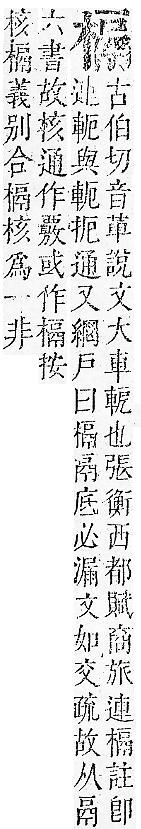 槅
古伯切音革說文大車軛也張衡西都賦商旅連槅註卽
連軛與軶扼通又網戶曰槅鬲底必漏文如交疏故从鬲
六書故核通作覈或作槅按
核槅義别合槅核爲一非